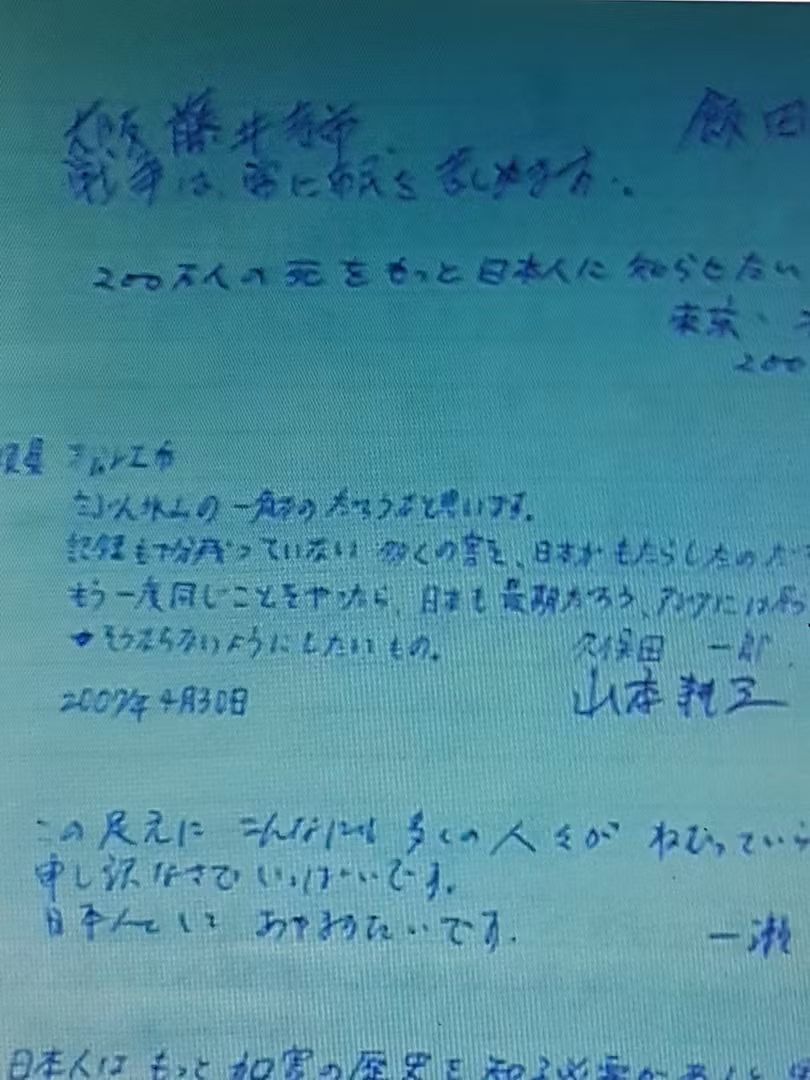 大阪 藤井 飯田
戦争は、常に市民を苦しめる方..
200万人の死をもっと日本人に知らせたい
東京
200
氷山の一角なのだろうなと思います。
記録も十分残っていない 多くの害を、日本がもたらしたのだ
もう一度同じことをやったら、日本も最期だろう、アジアには
そうならないようにしたいもの。 久保田 一郎
2007年4月30日 山本
この足元に こんなにも 多くの人々が ねむってい
申し訳なさで いっぱいです。
日本人として あやまりたいです。 一瀬
日本人は もっと 加害の歴史を知る必要があると